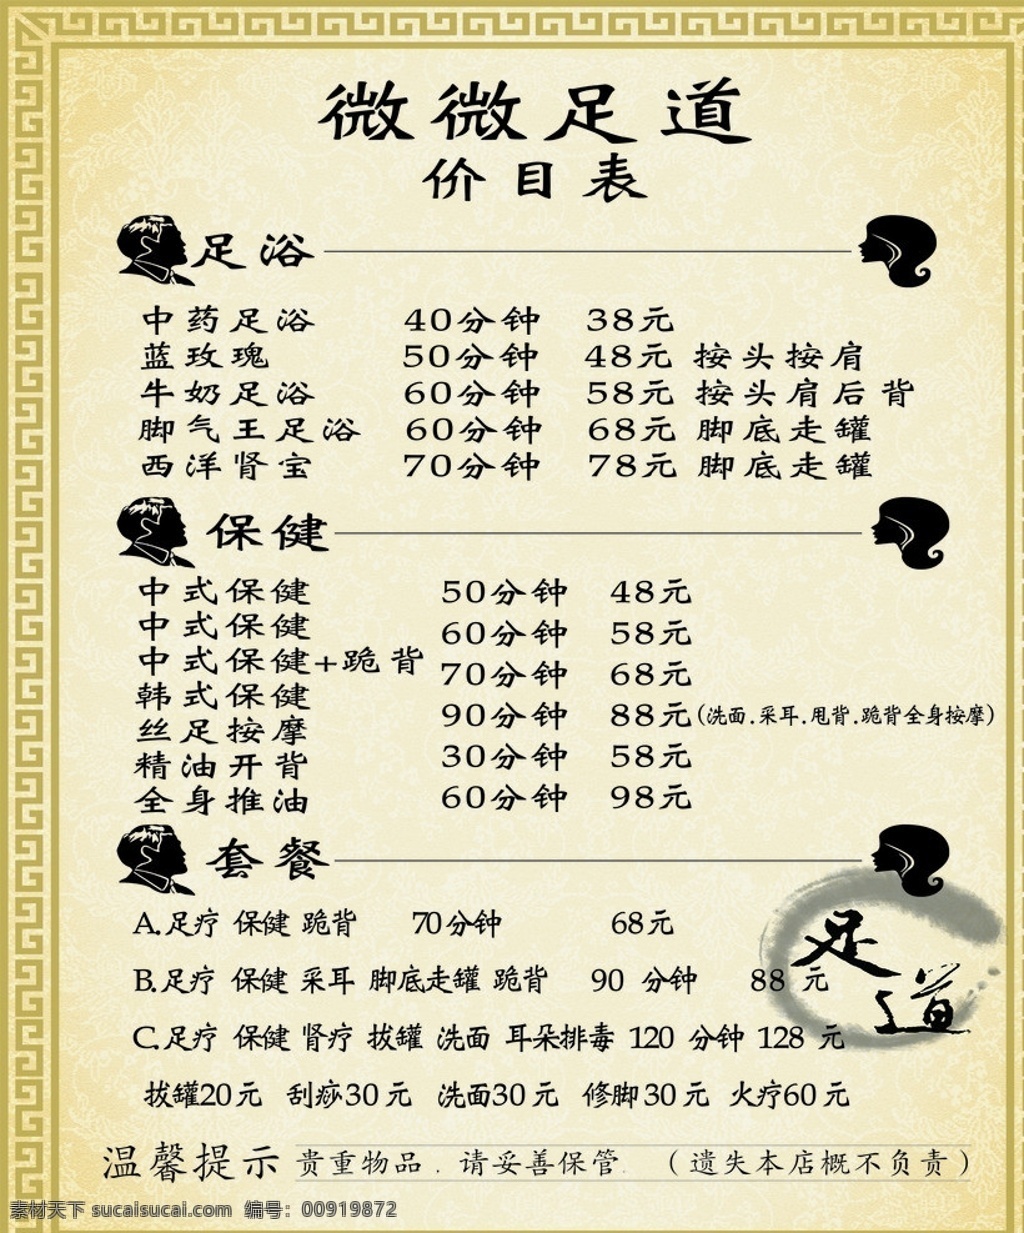 微微足道
价目表
足浴
中药足浴 40分钟 38元
蓝玫瑰 50分钟 48元 按头按肩
牛奶足浴 60分钟 58元 按头肩后背
脚气王足浴 60分钟 68元 脚底走罐
西洋肾宝 70分钟 78元 脚底走罐
保健
中式保健 50分钟 48元
中式保健 60分钟 58元
中式保健+跪背 70分钟 68元
韩式保健 90分钟 88元(洗面.采耳.甩背.跪背全身按摩)
丝足按摩
精油开背 30分钟 58元
全身推油 60分钟 98元
套餐
A.足疗 保健 跪背 70分钟 68元
B.足疗 保健 采耳 脚底走罐 跪背 90 分钟 88 元
足道
C.足疗 保健 肾疗 拔罐 洗面 耳朵排毒 120 分钟 128 元
拔罐20元 刮痧30元 洗面30元 修脚30元 火疗60元
温馨提示 贵重物品．请妥善保管．（遗失本店概不负责）
素材天下 sucaisucai.com 编号：00919872